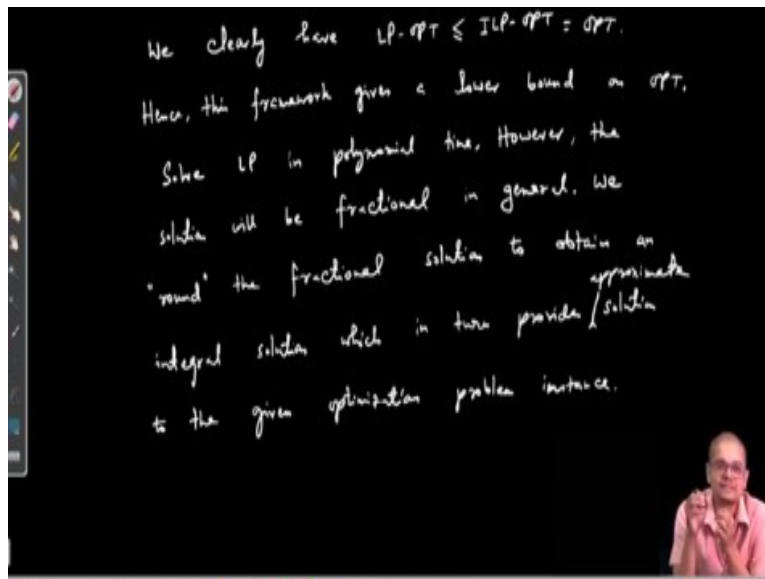 We clearly have LP-OPT ≤ ILP-OPT = OPT.
Hence, this framework gives a lower bound on OPT.
Solve LP in polynomial time. However, the
solution will be fractional in general. We
"round" the fractional solution to obtain an
integral solution which in turn provides approximate solution
to the given optimization problem instance.